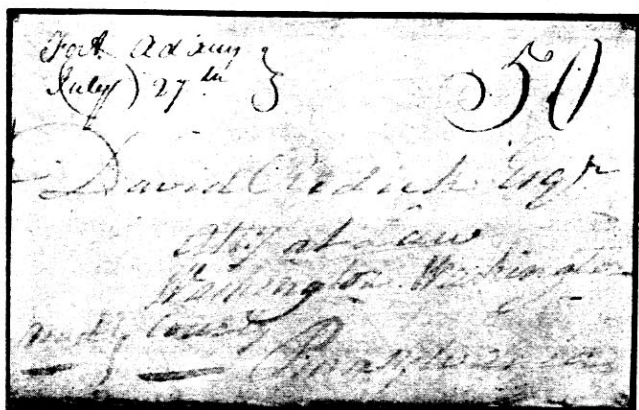 Fort Adams
July 27th
50
David Redick Esqr
Atty at Law
Washington Washington
County
Pennsylvania